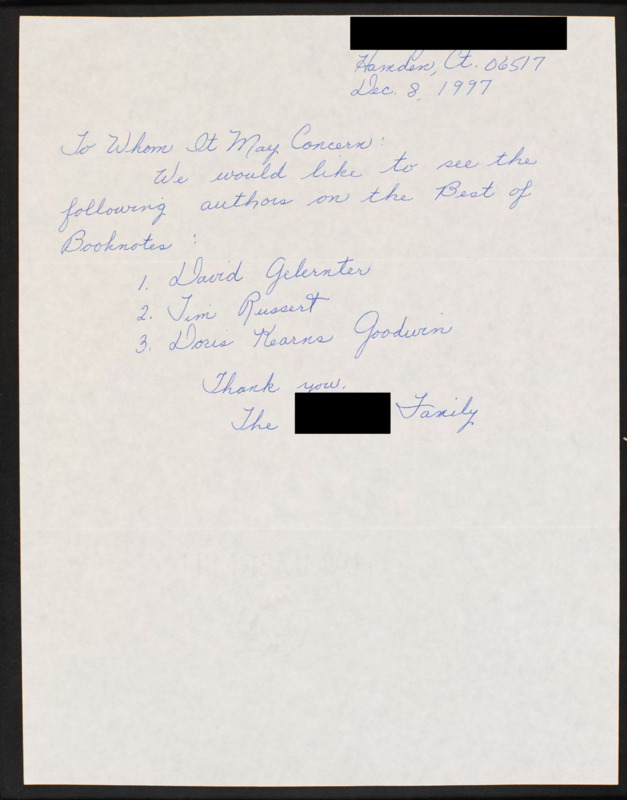 Hamden, Ct. 06517
Dec. 8, 1997
To Whom It May Concern:
We would like to see the
following authors on the Best of
Booknotes :
1. David Gelernter
2. Tim Russert
3. Doris Kearns Goodwin
Thank you.
The Family